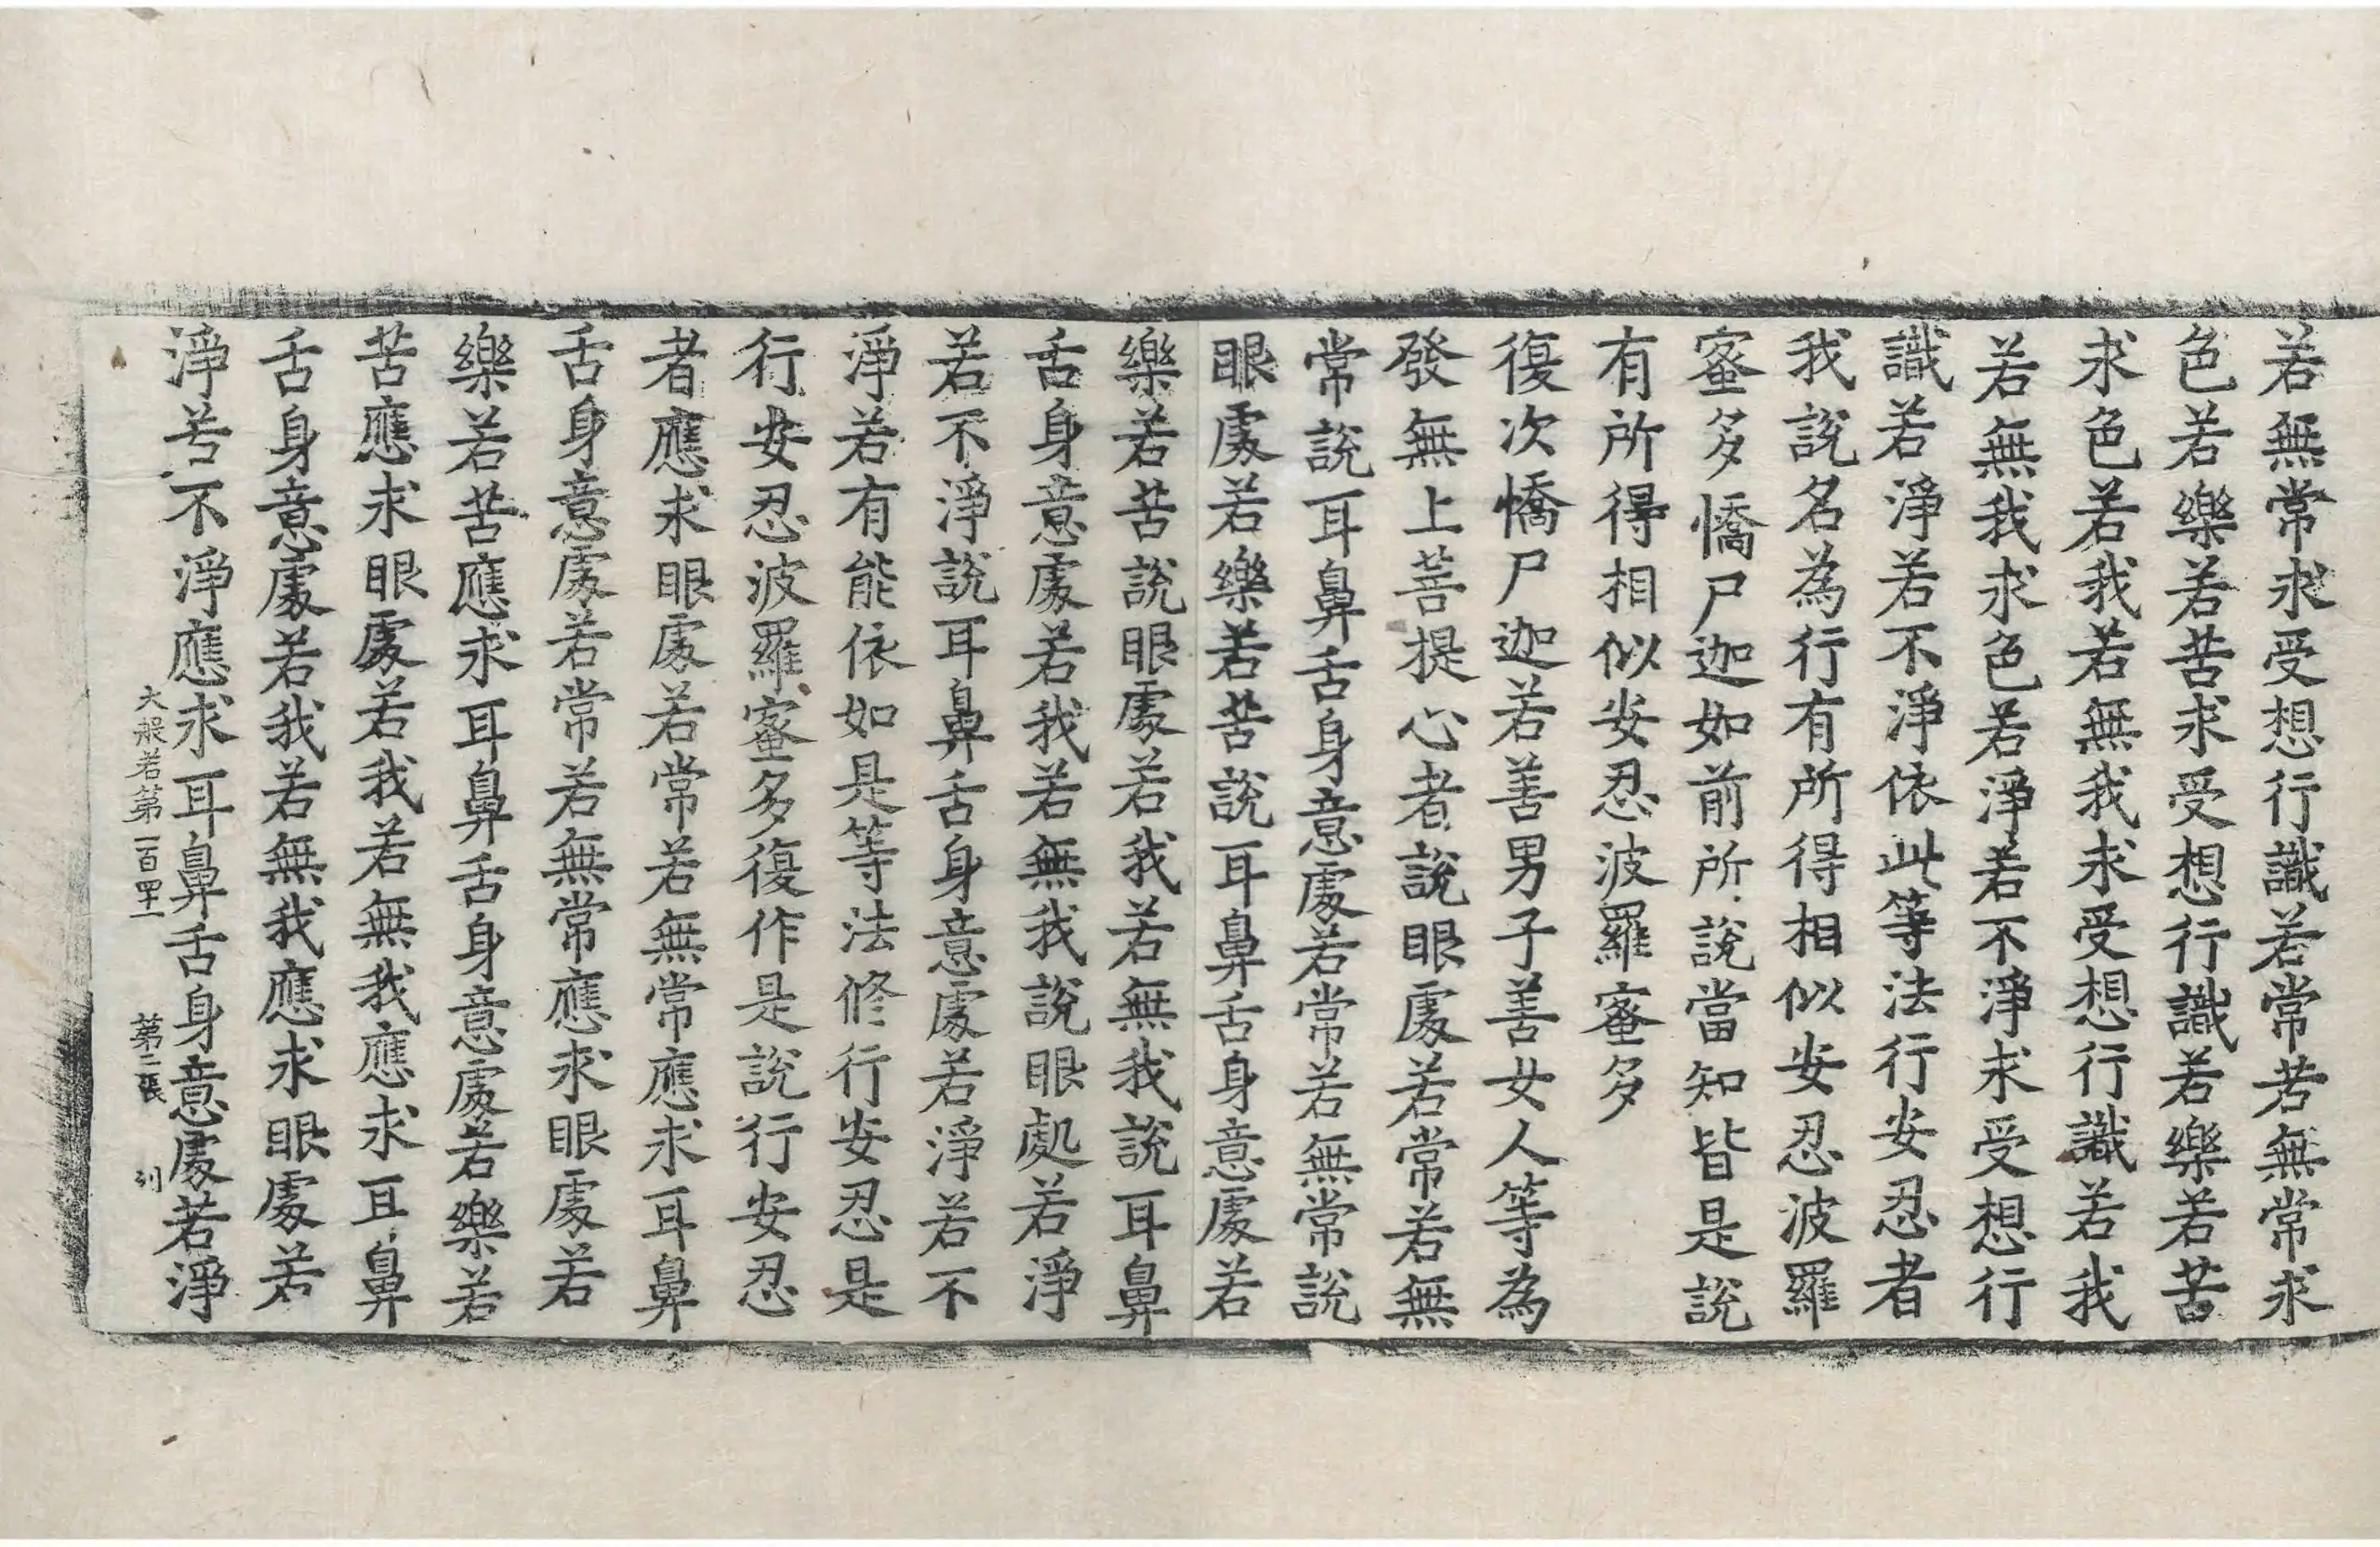 若無常求受想行識若常若無常求
色若樂若苦求受想行識若樂若苦
求色若我若無我求受想行識若我
若無我求色若淨若不淨求受想行
識若淨若不淨依此等法行安忍者
我說名為行有所得相似安忍波羅
蜜多憍尸迦如前所說當知皆是說
有所得相似安忍波羅蜜多
復次憍尸迦若善男子善女人等為
發無上菩提心者說眼處若常若無
常說耳鼻舌身意處若常若無常說
眼處若樂若苦說耳鼻舌身意處若
樂若苦說眼處若我若無我說耳鼻
舌身意處若我若無我說眼処若淨
若不淨說耳鼻舌身意處若淨若不
淨若有能依如是等法修行安忍是
行安忍波羅蜜多復作是說行安忍
者應求眼處若常若無常應求耳鼻
舌身意處若常若無常應求眼處若
樂若苦應求耳鼻舌身意處若樂若
苦應求眼處若我若無我應求耳鼻
舌身意處若我若無我應求眼處若
淨若不淨應求耳鼻舌身意處若淨
大般若第一百四十一 第二張